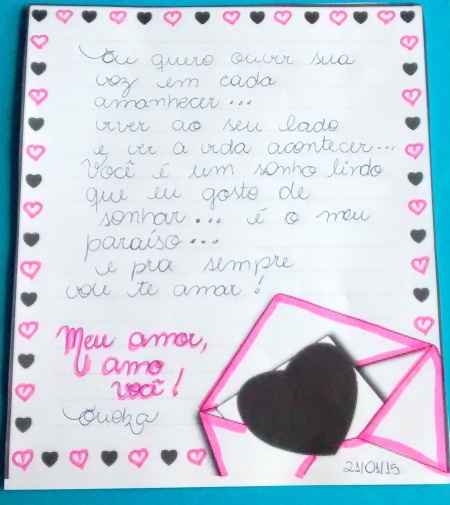 Eu quero ouvir sua
voz em cada
amanhecer...
viver ao seu lado
e ver a vida acontecer...
Você é um sonho lindo
que eu gosto de
sonhar... é o meu
paraíso...
e pra sempre
vou te amar!
Meu amor,
amo
você!
21/01/15